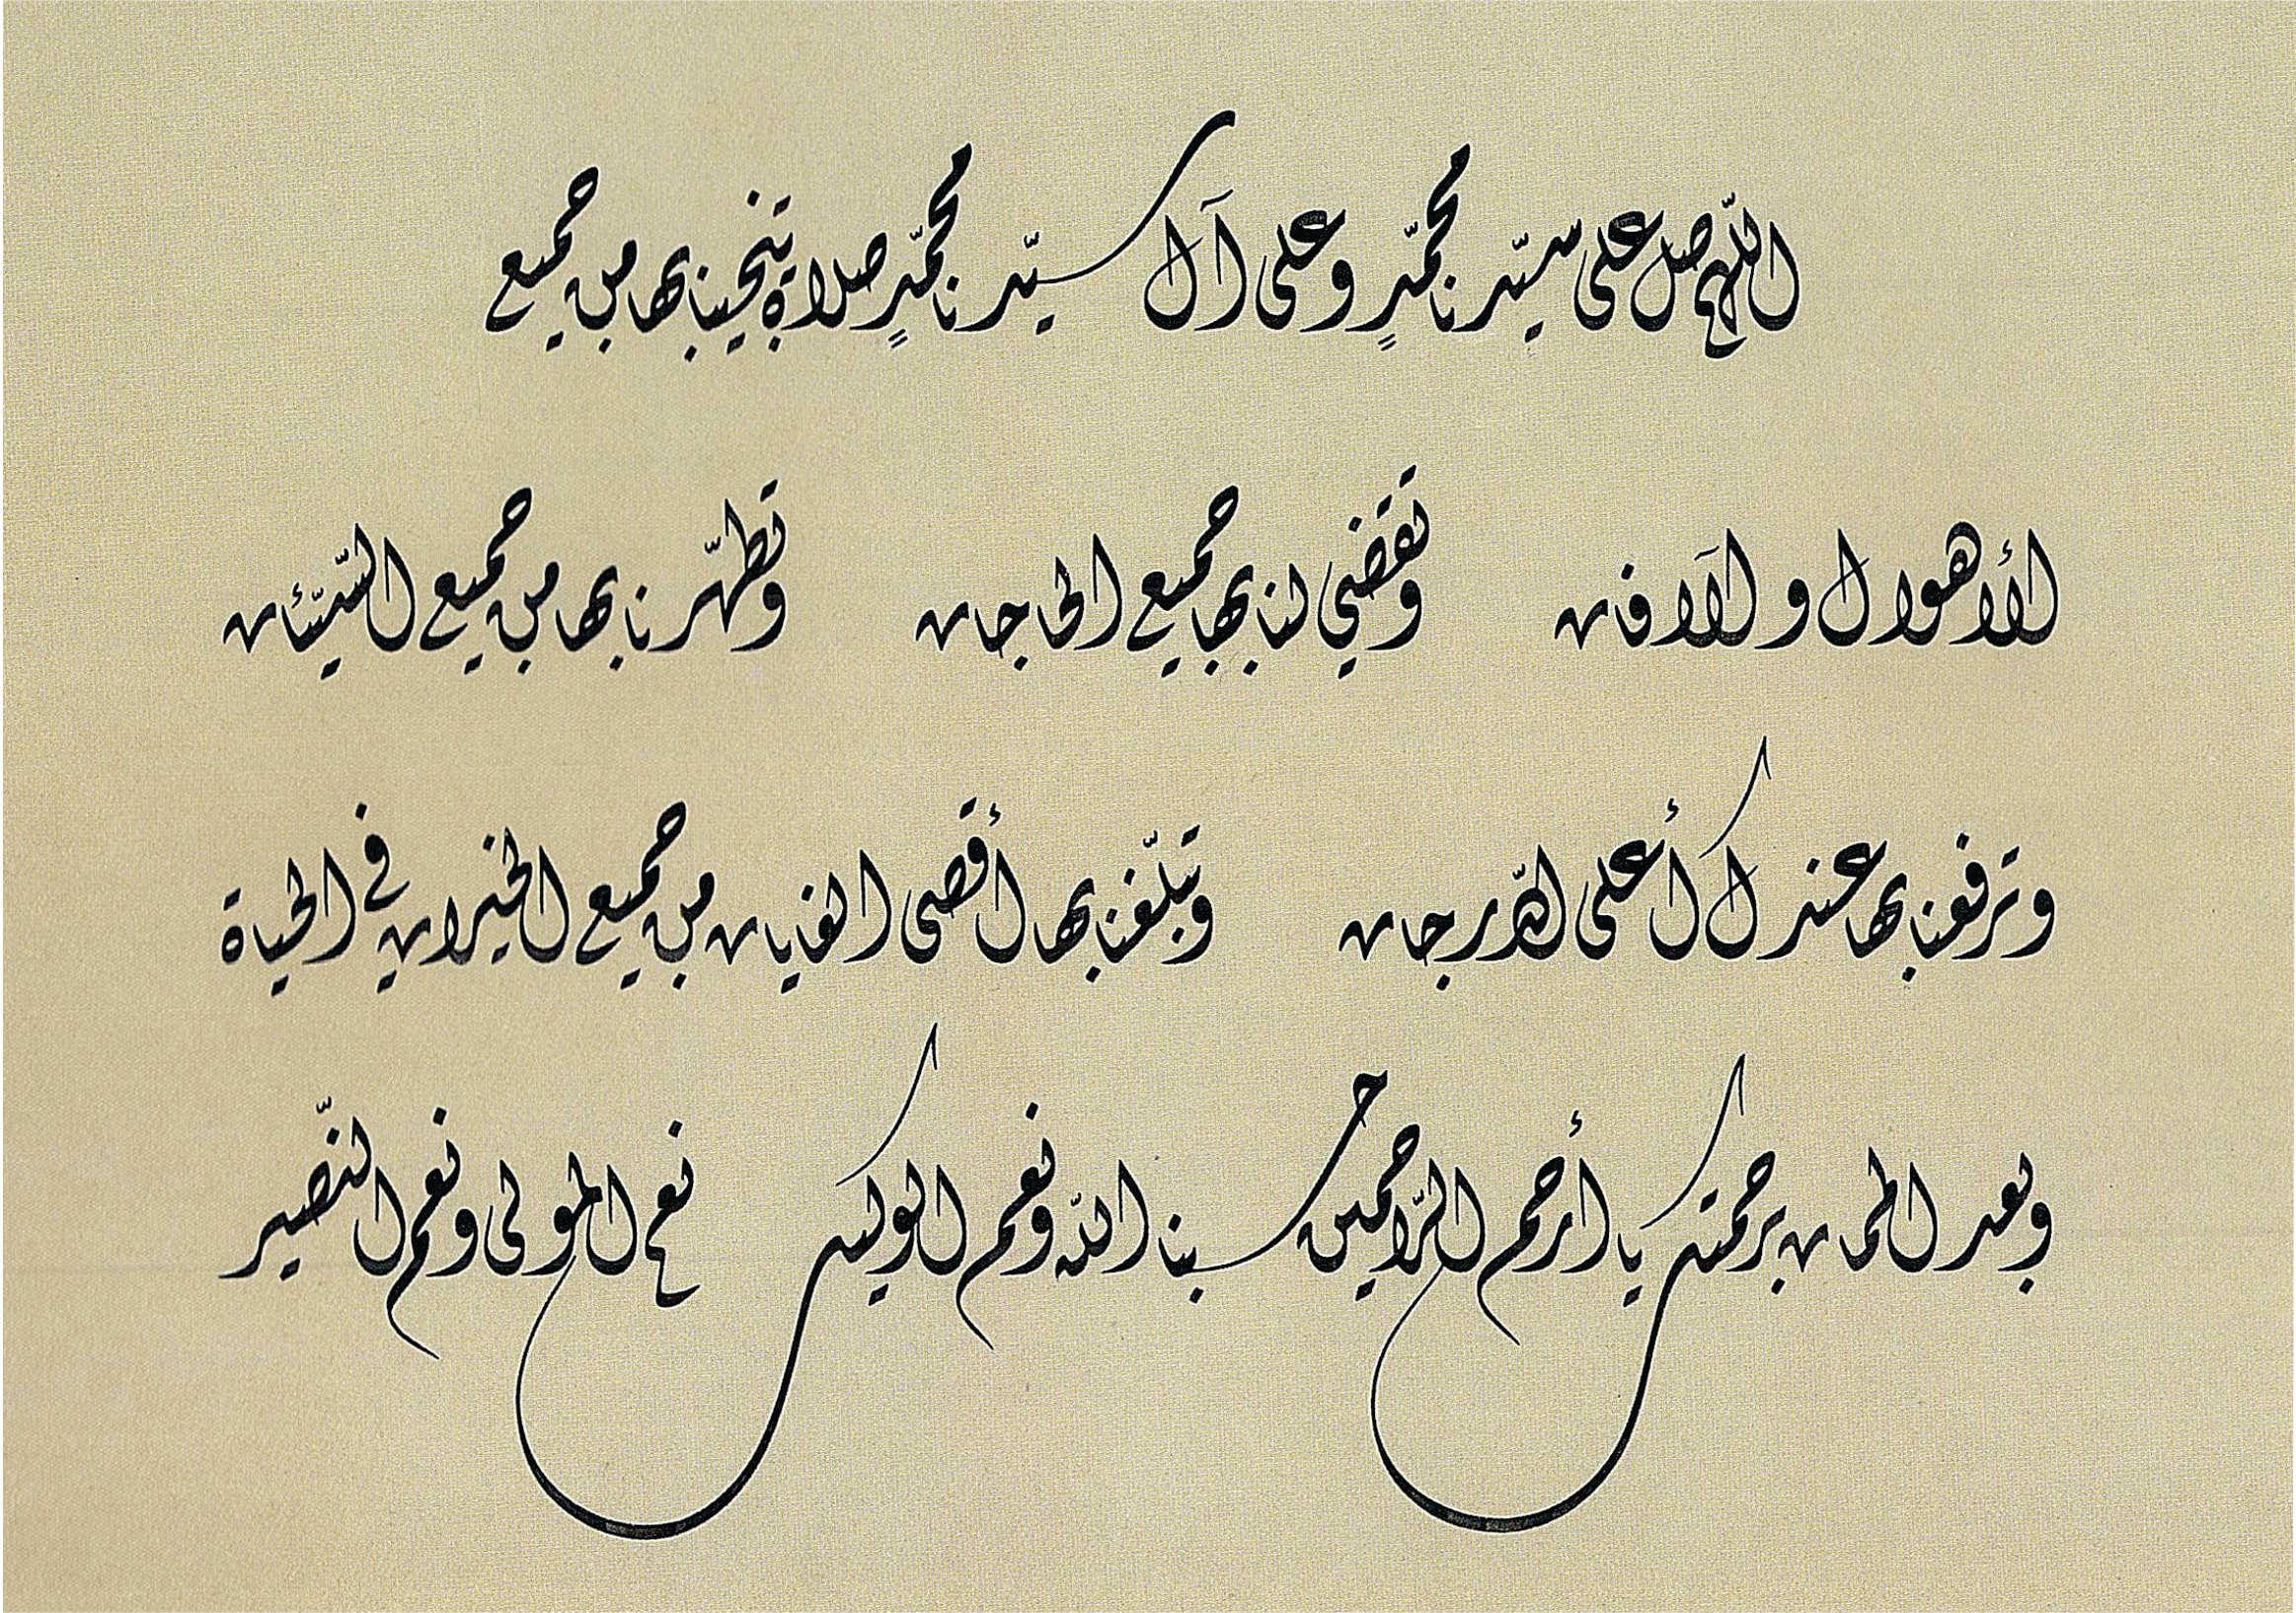 اللّهم صل على سيّدنا محمّدٍ وعلى آل سيّدنا محمّدٍ صلاة تنجينا بها من جميع
الأهوال والآفات وتقضي لنا بها جميع الحاجات وتطهّرنا بها من جميع السّيّئات
وترفعنا بها عندك أعلى الدّرجات وتبلّغنا بها أقصى الغايات من جميع الخيرات في الحياة
وبعد الممات برحمتك يا أرحم الرّاحمين حسبنا اللّه ونعم الوكيل نعم المولى ونعم النّصير